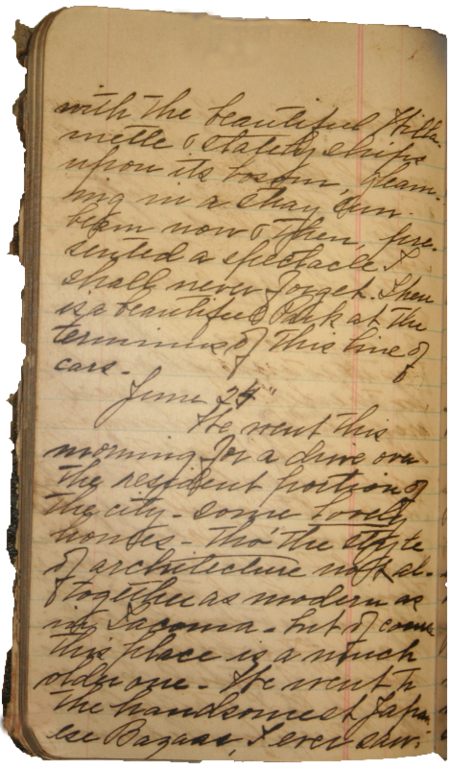 with the beautiful Willa-
mette & stately ships
upon its bosom, gleam-
ing in a stray sun-
beam now & then, pre-
sented a spectacle I
shall never forget. There
is a beautiful Park at the
terminus of this line of
cars.
June 24"
We went this
morning for a drive over
the resident portion of
the city - some lovely
homes - tho' the style
of architecture not al-
together as modern as
in Tacoma - but of course
this place is a much
older one - We went to
the handsomest Japan
ese Bazaar, I ever saw: